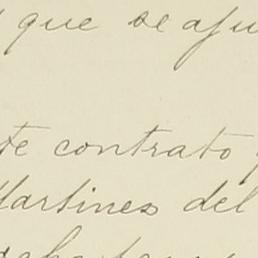 que se aju
te contrato
Martines del